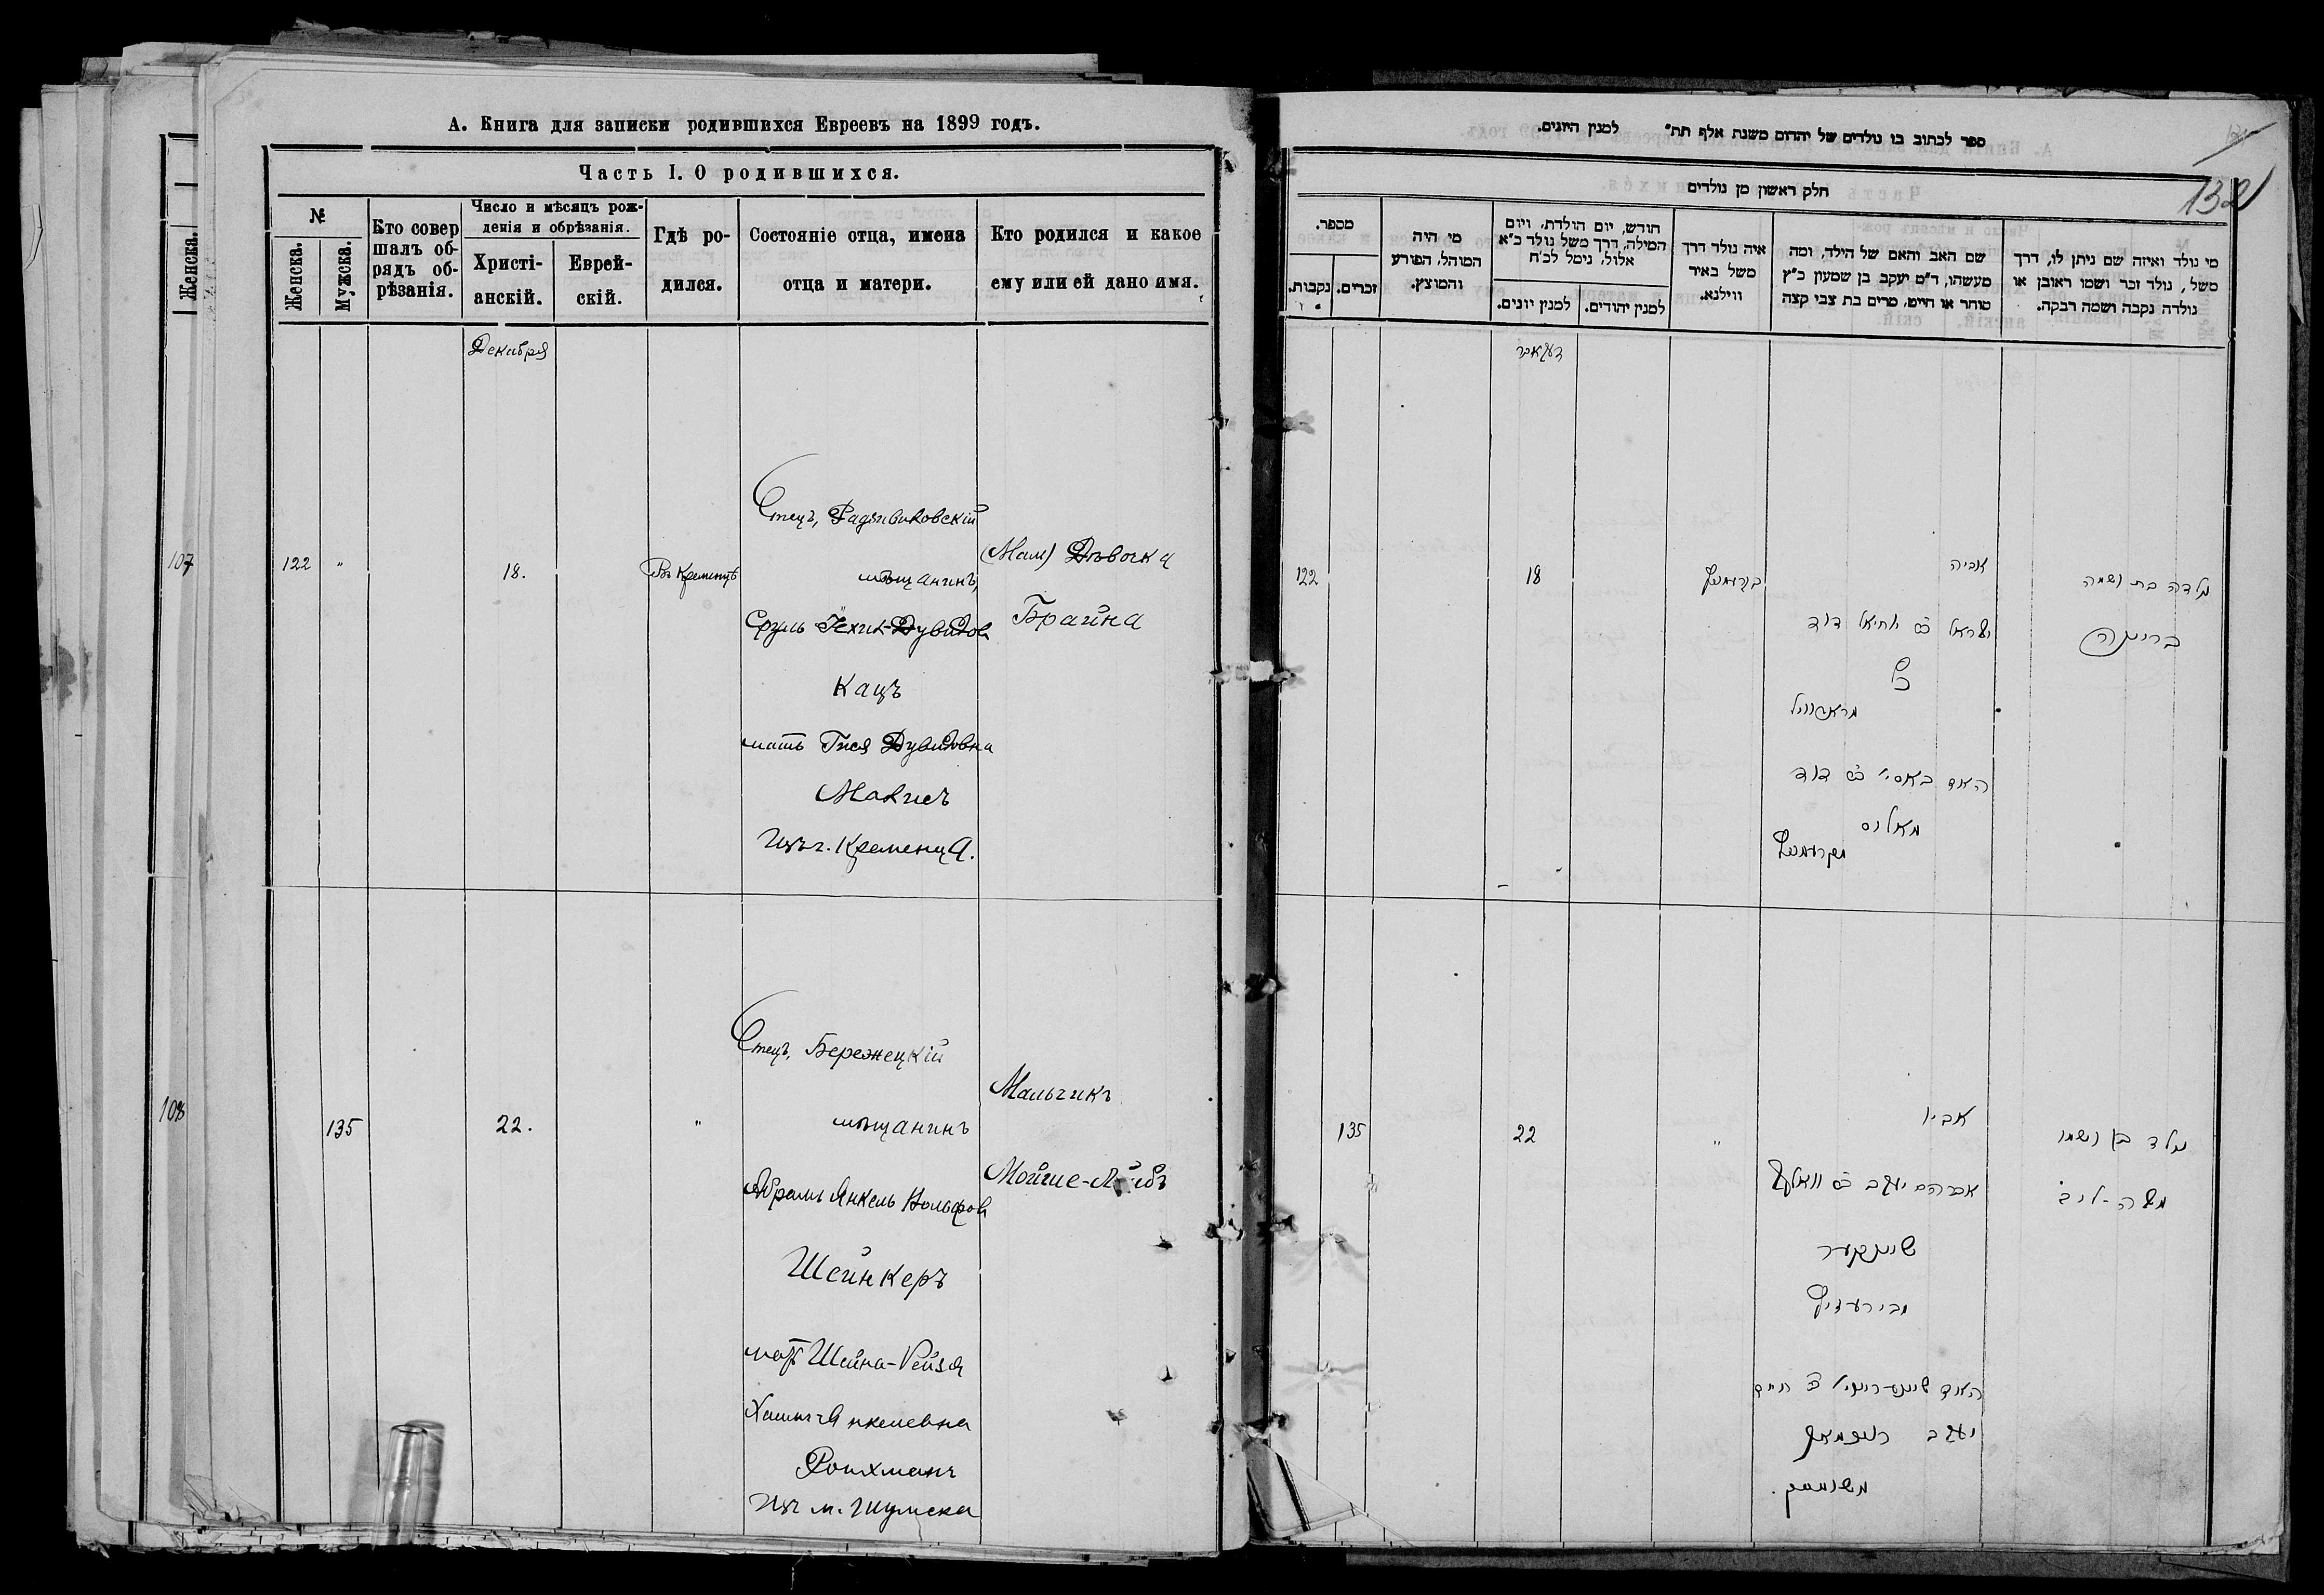 А. Книга для записки родившихся Евреевъ на 1899 годъ.
Часть I. О родившихся.
№
Женска.
Мужска.
Кто совер
шалъ об-
рядъ об-
рѣзанія.
Число и мѣсяцъ рож-
денія и обрѣзанія.
Христі-
анскій.
Еврей-
скій.
Гдѣ ро-
дился.
Состояніе отца, имена
отца и матери.
Кто родился и какое
ему или ей дано имя.
Женска.
107
108
Декабря
122
"
18.
Въ Кременцѣ
Отецъ, Радзивиловскій
мѣщанинъ,
Сруль Іехил-Дувидов
Кацъ
мать Гися Дувидовна
Малисъ
изъ г. Кременца.
Дѣвочка
Брайна
135
22.
"
Отецъ, Бережецкій
мѣщанинъ
Абрамъ Янкель Вольфов
Шейнкеръ
мать Шейна-Рейзя
Хаимъ Янкелевна
Ройхманъ
изъ м. Шумска
Мальчикъ
Мойше-Лейбъ
ספר לכתוב בו נולדים של יהדום משנת אלף תת״ למנין היונים.
132
חלק ראשון מן נולדים
מספר.
נקבות.
זכרים.
מי היה
המוהל, הפורע
והמוצץ.
חודש, יום הולדת, ויום
המילה, דרך משל נולד כ״א
אלול, נימל לכ״ח
למנין יונים.
למנין יהודים.
איה נולד דרך
משל באיד
ווילנא.
שם האב והאם של הילד, ומה
מעשהו, ד״מ יעקב בן שמעון כ״ץ
סוחר או חייט, מרים בת צבי קצה
מי נולד ואיזה שם ניתן לו, דרך
משל, נולד זכר ושמו ראובן או
נולדה נקבה ושמה רבקה.
דעקאבר
122
18
בקרעמעניץ
אביה
ישראל ב״ר יחיאל דוד
כץ
מראדוויל
האם באסי׳ ב״ר דוד
מאליס
מקרעמעניץ
נולדה בת ושמה
בריינה
135
22
"
אביו
אברהם יעקב ב״ר וואלף
שיינקער
האם שיינע-רייזי׳ ב״ר חיים
יעקב רויכמאן
משומסק.
נולד בן ושמו
משה-ליב